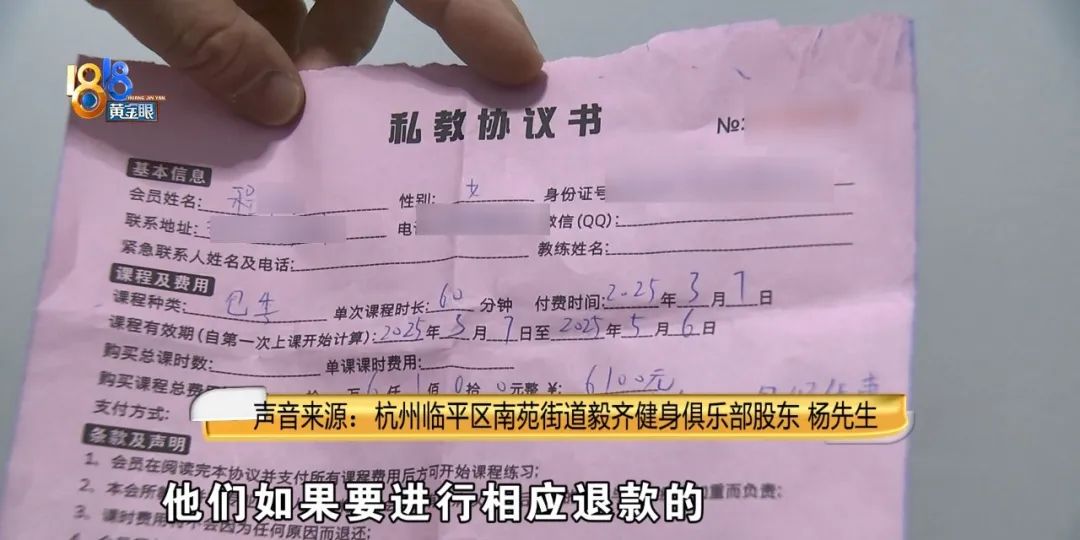 1818
HUANG JIN YAN
黄金眼
私教协议书 №:
基本信息
会员姓名: 性别: 女 身份证号
联系地址: 电 微信(QQ):
紧急联系人姓名及电话: 教练姓名:
课程及费用
课程种类: 包季 单次课程时长: 60 分钟 付费时间: 2025年3月7日
课程有效期(自第一次上课开始计算): 2025年3月7日至2025年5月6日
购买总课时数: 单课课时费用:
购买课程总费用 6仟1佰0拾0元整 ¥: 6100元
支付方式:
声音来源: 杭州临平区南苑街道毅齐健身俱乐部股东 杨先生
条款及声明
1、会员在阅读完本协议并支付所有课程费用后方可开始课程练习;
2、本会所教 重而负责;
3、课时费用 不会因为任何原因而退还;
他们如果要进行相应退款的